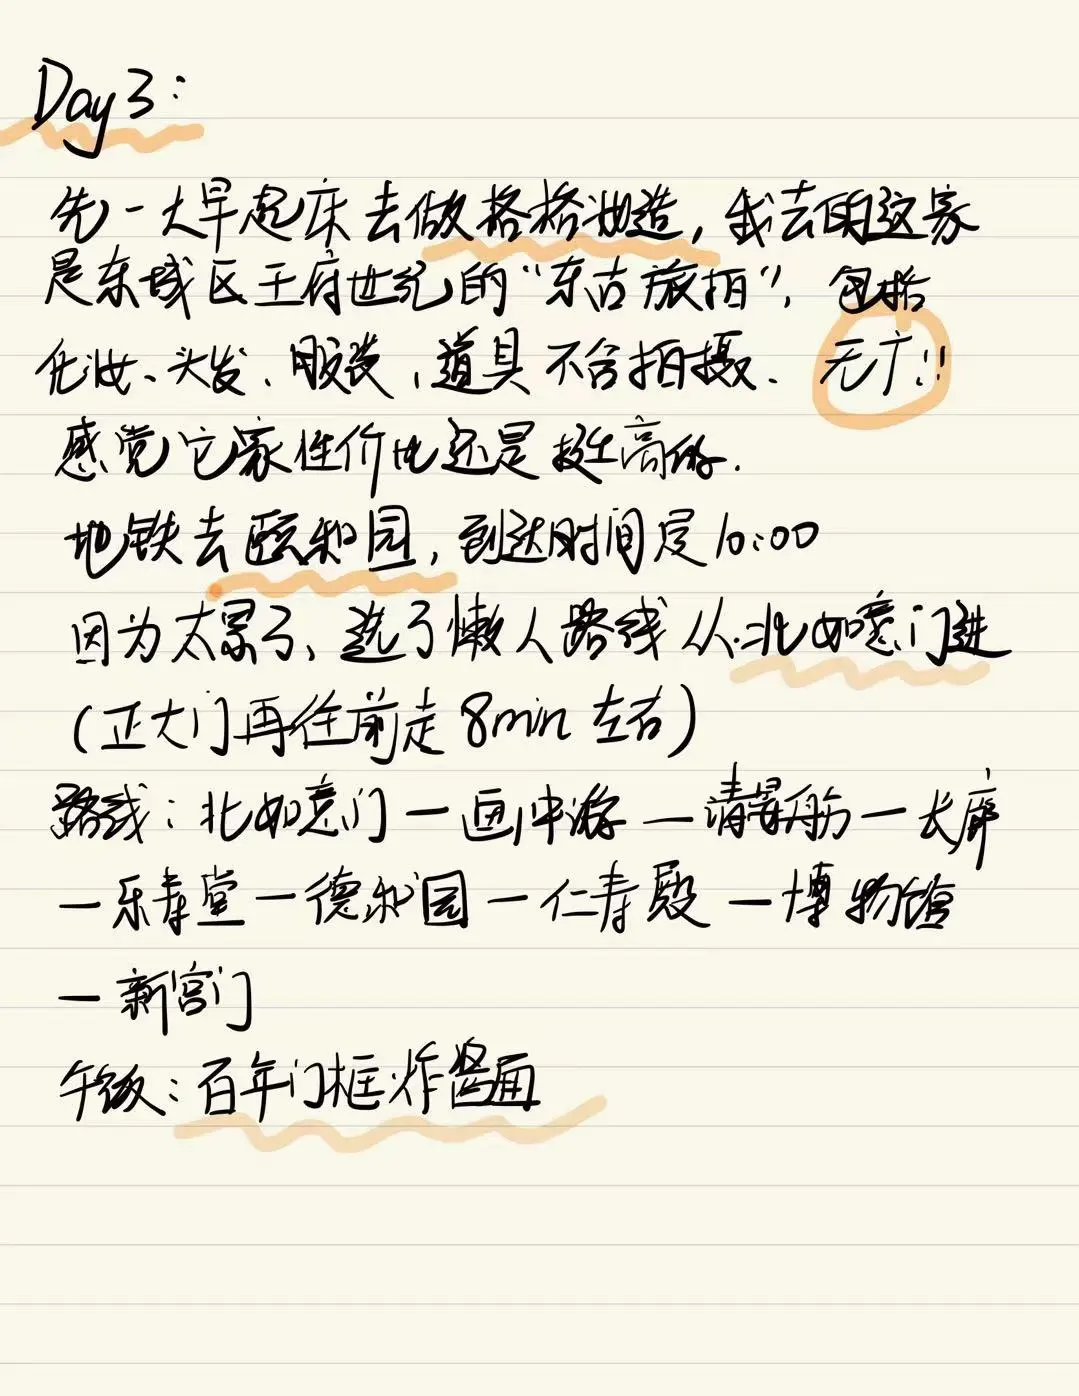 Day 3:
先一大早起床去做格格妆造，我去的这家
是东城区王府世纪的“东古旅拍”，包括
化妆、头发、服装、道具不含拍摄、无广!!
感觉它家性价比还是挺高的.
地铁去颐和园，到达时间是10:00
因为太累了、选了懒人路线从北如意门进
(正大门再往前走8min左右)
路线：北如意门一画中游一清晏舫一长廊
一乐寿堂一德和园一仁寿殿一博物馆
一新宫门
午饭：百年门框炸酱面